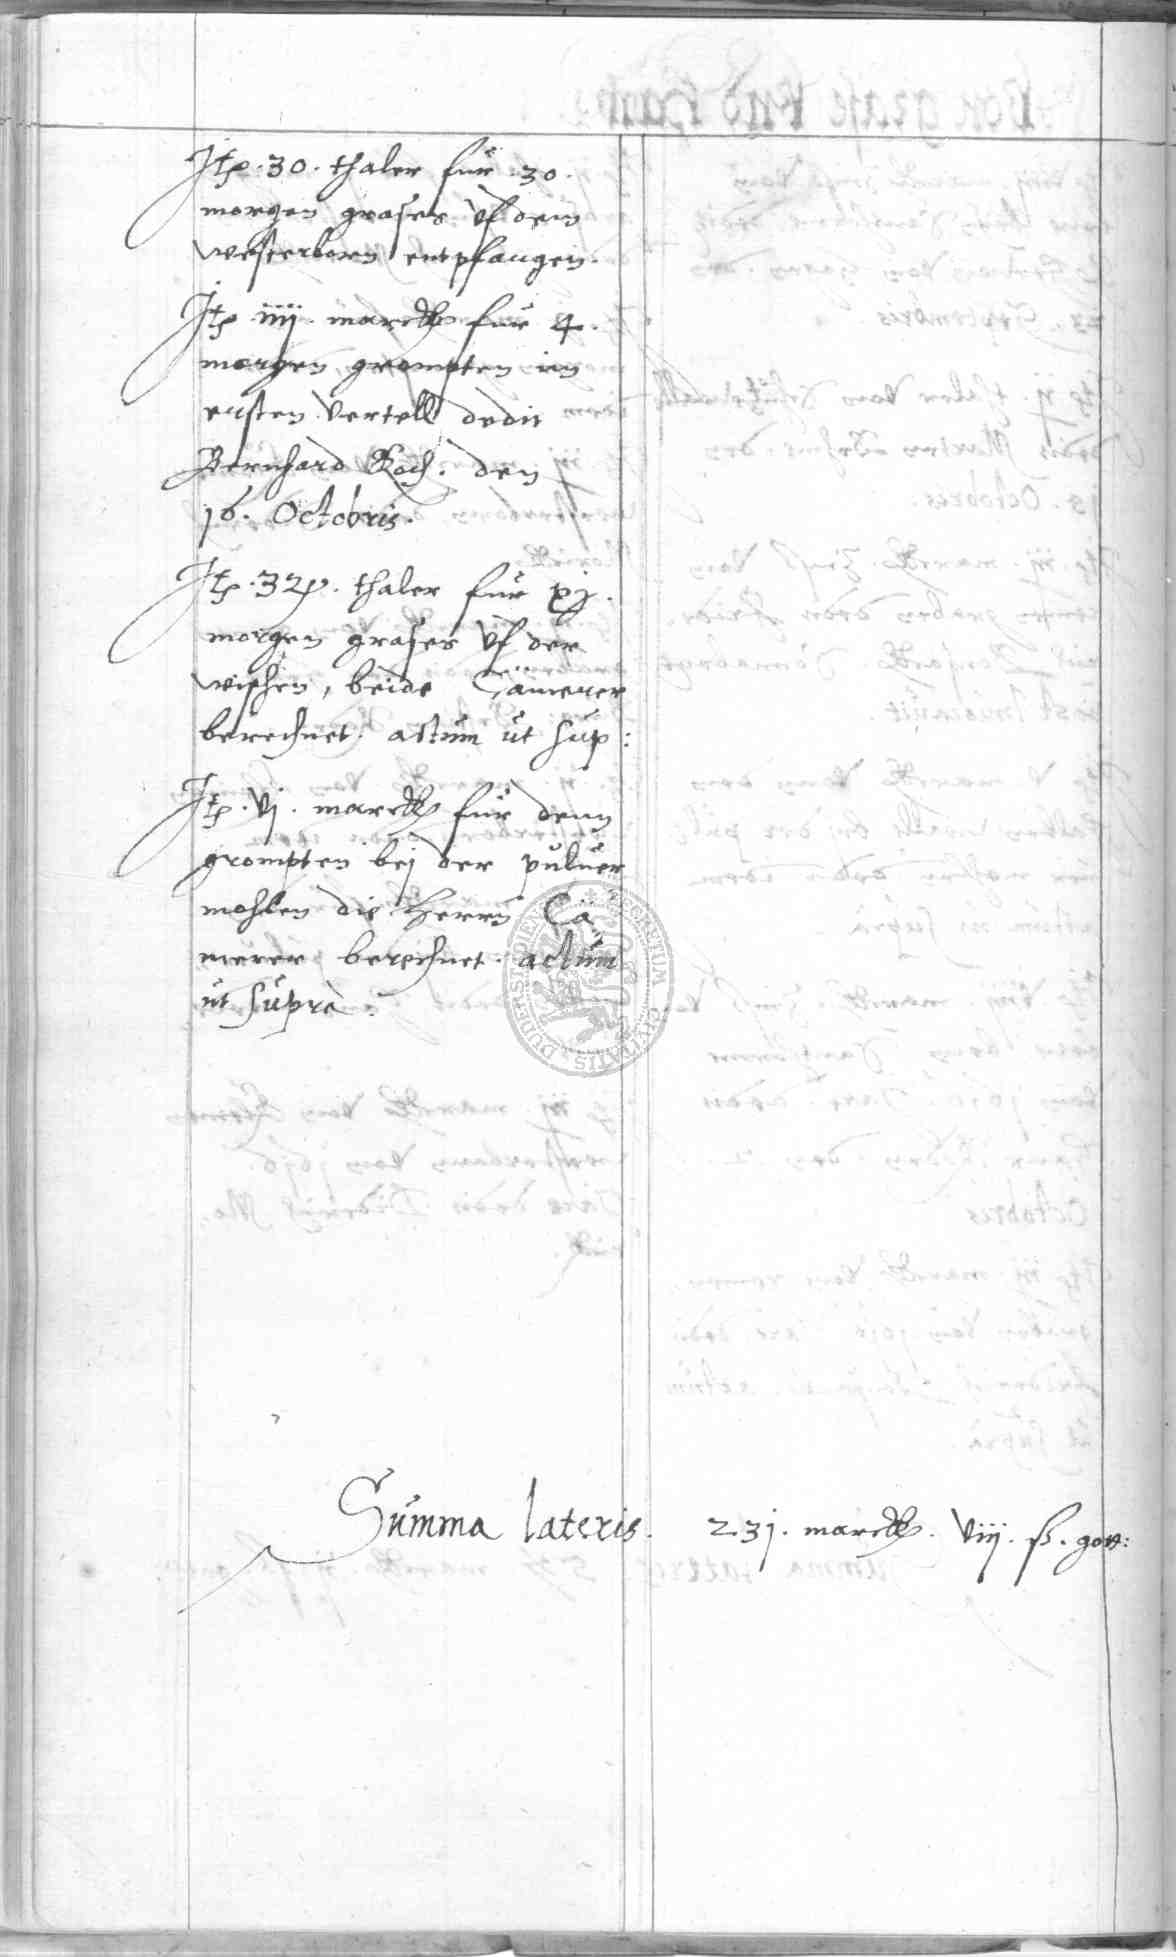 Itp. 30. thaler fur 30.
morgen grases vf dem
westerborn entpfangen.
Itp. iiij. marck fur 4.
morgen grompten im
ersten vertell dedit
Bernhard Koch. den
16. Octobris.
Itp. thaler fur xj.
morgen grases vf der
wischen, beide Cämerer
berechnet. actum ut sup:
Itp. vj. marck fur denn
grompten bej der puluer
mohlen die Herrn Cä
merer berechnet. actum
ut supra.
Summa lateris. 231. marck. viij. ß. gott:
DUDERSTADIENSIS CIVITATIS SECRETUM